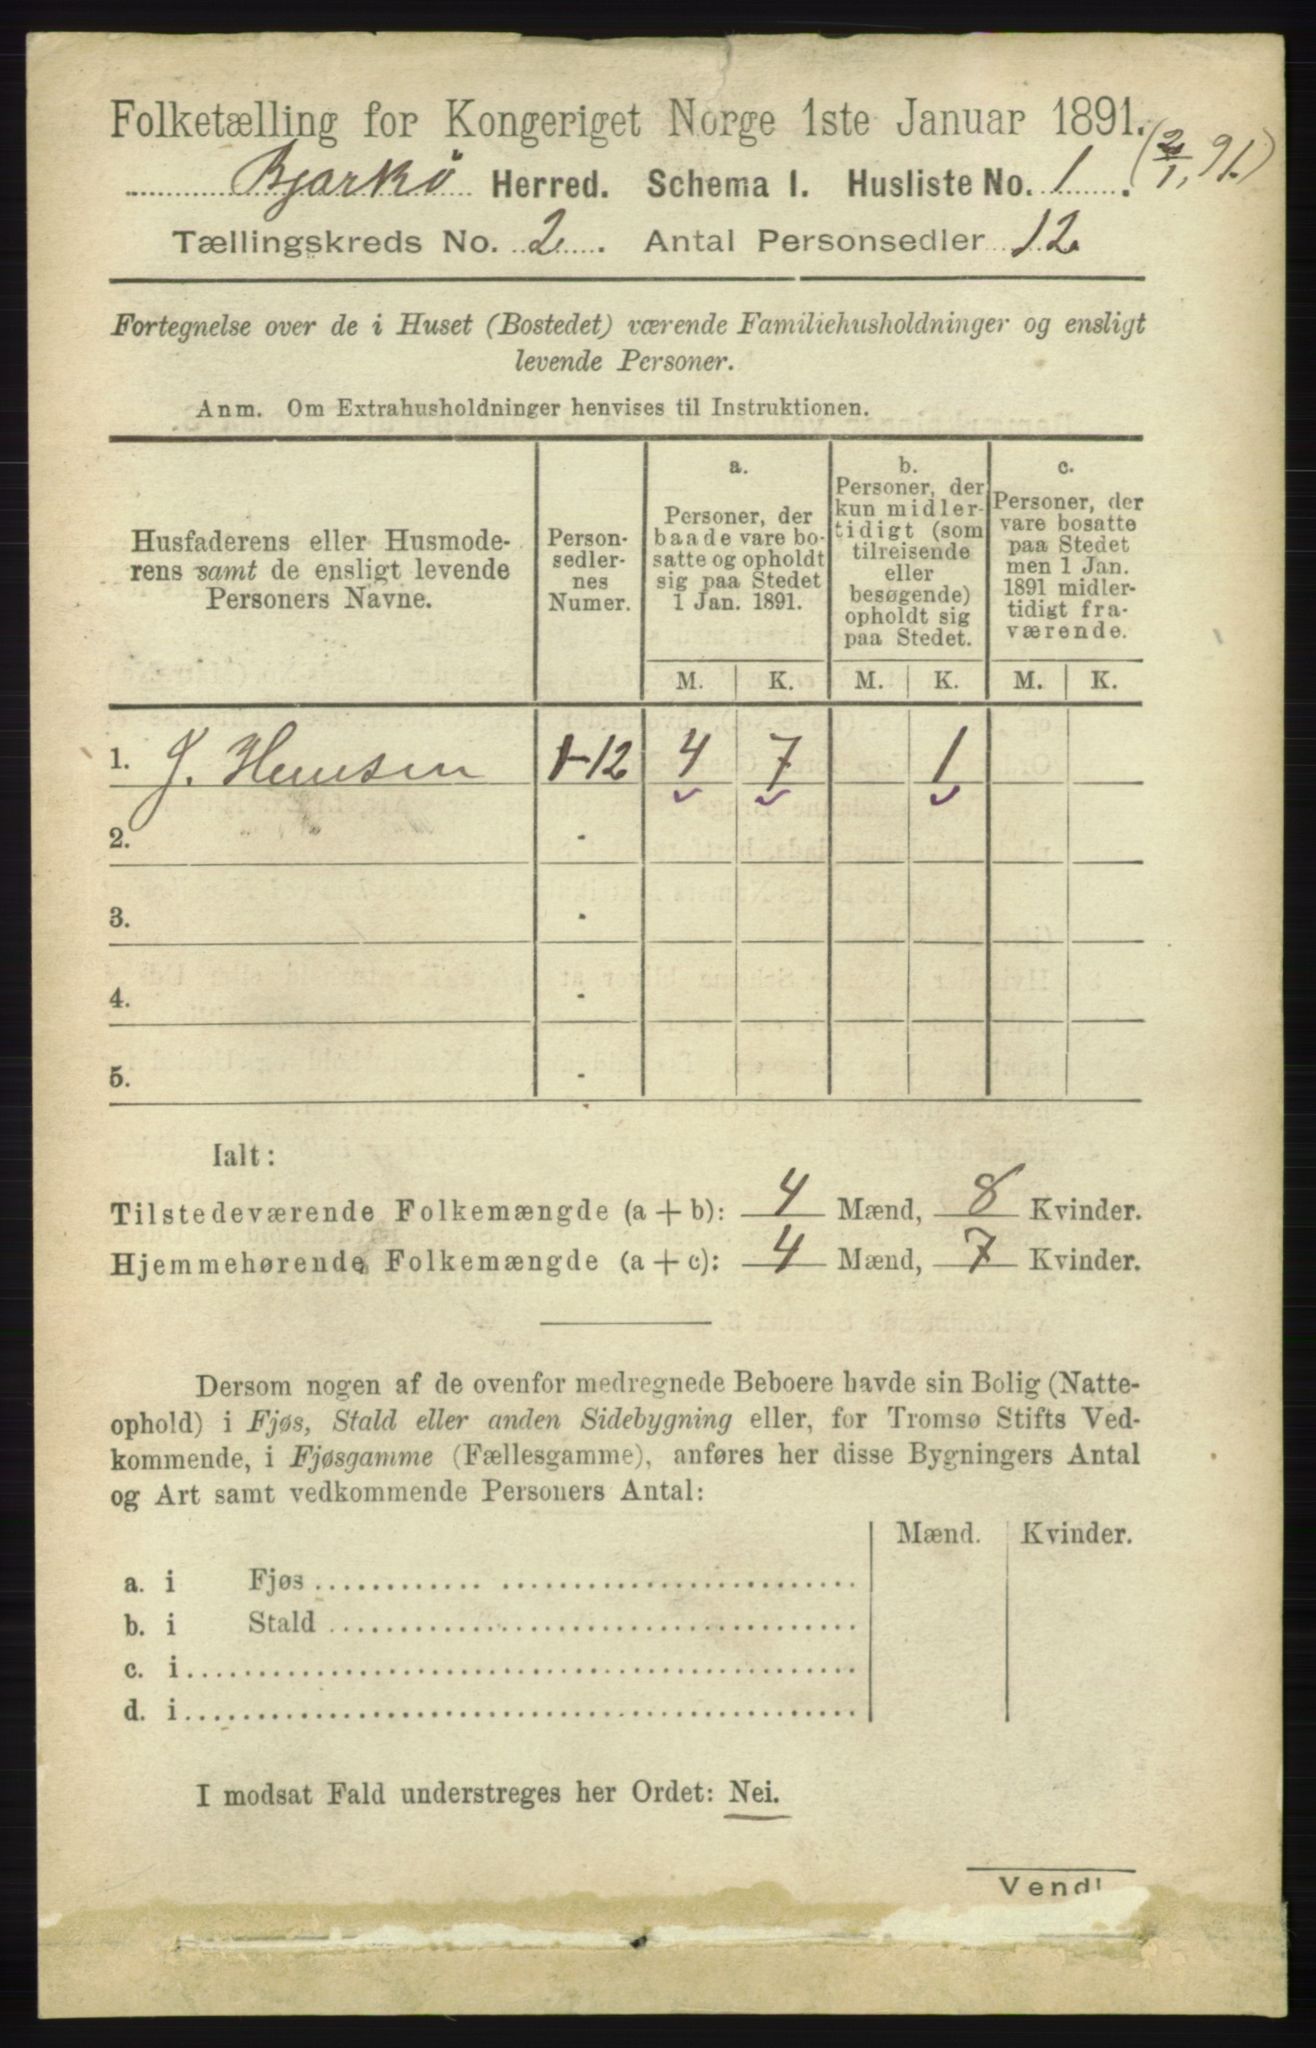 Folketælling for Kongeriget Norge 1ste Januar 1891.
Bjarkö Herred. Schema I. Husliste No. 1. (2/1, 91.)
Tællingskreds No. 2. Antal Personsedler 12.
Fortegnelse over de i Huset (Bostedet) værende Familiehusholdninger og ensligt
levende Personer.
Anm. Om Extrahusholdninger henvises til Instruktionen.
Husfaderens eller Husmode-
rens samt de ensligt levende
Personers Navne.
Person-
sedler-
nes
Numer.
a.
Personer, der
baade vare bo-
satte og opholdt
sig paa Stedet
1 Jan. 1891.
b.
Personer, der
kun midler-
tidigt (som
tilreisende
eller
besøgende)
opholdt sig
paa Stedet.
c.
Personer, der
vare bosatte
paa Stedet
men 1 Jan.
1891 midler-
tidigt fra-
værende.
M. K. M. K. M. K.
1. J. 1-12 4 7 1
2. -
3. -
4. -
5. -
Ialt:
Tilstedeværende Folkemængde (a + b): 4 Mænd, 8 Kvinder.
Hjemmehørende Folkemængde (a + c): 4 Mænd, 7 Kvinder.
Dersom nogen af de ovenfor medregnede Beboere havde sin Bolig (Natte-
ophold) i Fjøs, Stald eller anden Sidebygning eller, for Tromsø Stifts Ved-
kommende, i Fjøsgamme (Fællesgamme), anføres her disse Bygningers Antal
og Art samt vedkommende Personers Antal:
Mænd. Kvinder.
a. i Fjøs
b. i Stald
c. i
d. i
I modsat Fald understreges her Ordet: Nei.
Vend!